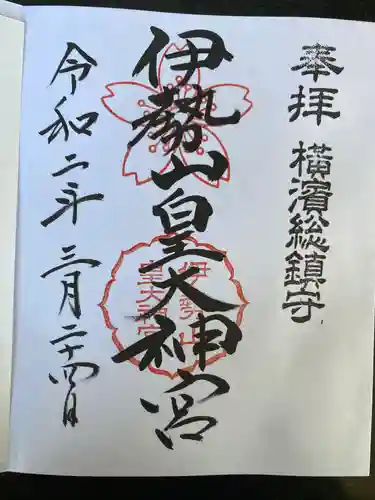 奉拝
横濱総鎮守
伊勢山皇大神宮
伊勢山
皇大神宮
令和二年三月二十四日